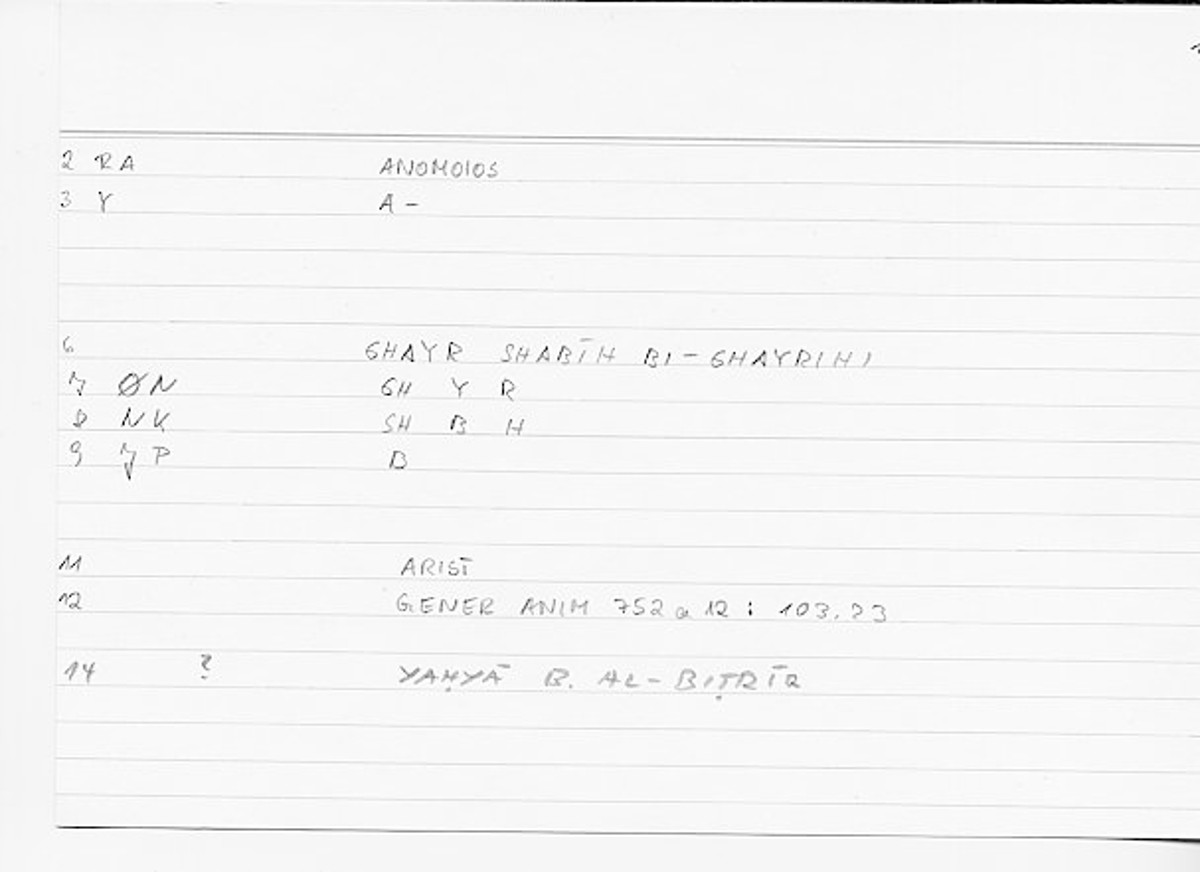 2 RA ANOMOIOS
3 Y A -
6 GHAYR SHABĪH BI-GHAYRIHI
7 ØN GH Y R
8 NK SH B H
9 JP B
11 ARIST
12 GENER ANIM 752 a 12 : 103.23
14 ? YAḤYĀ B. AL-BIṬRĪQ